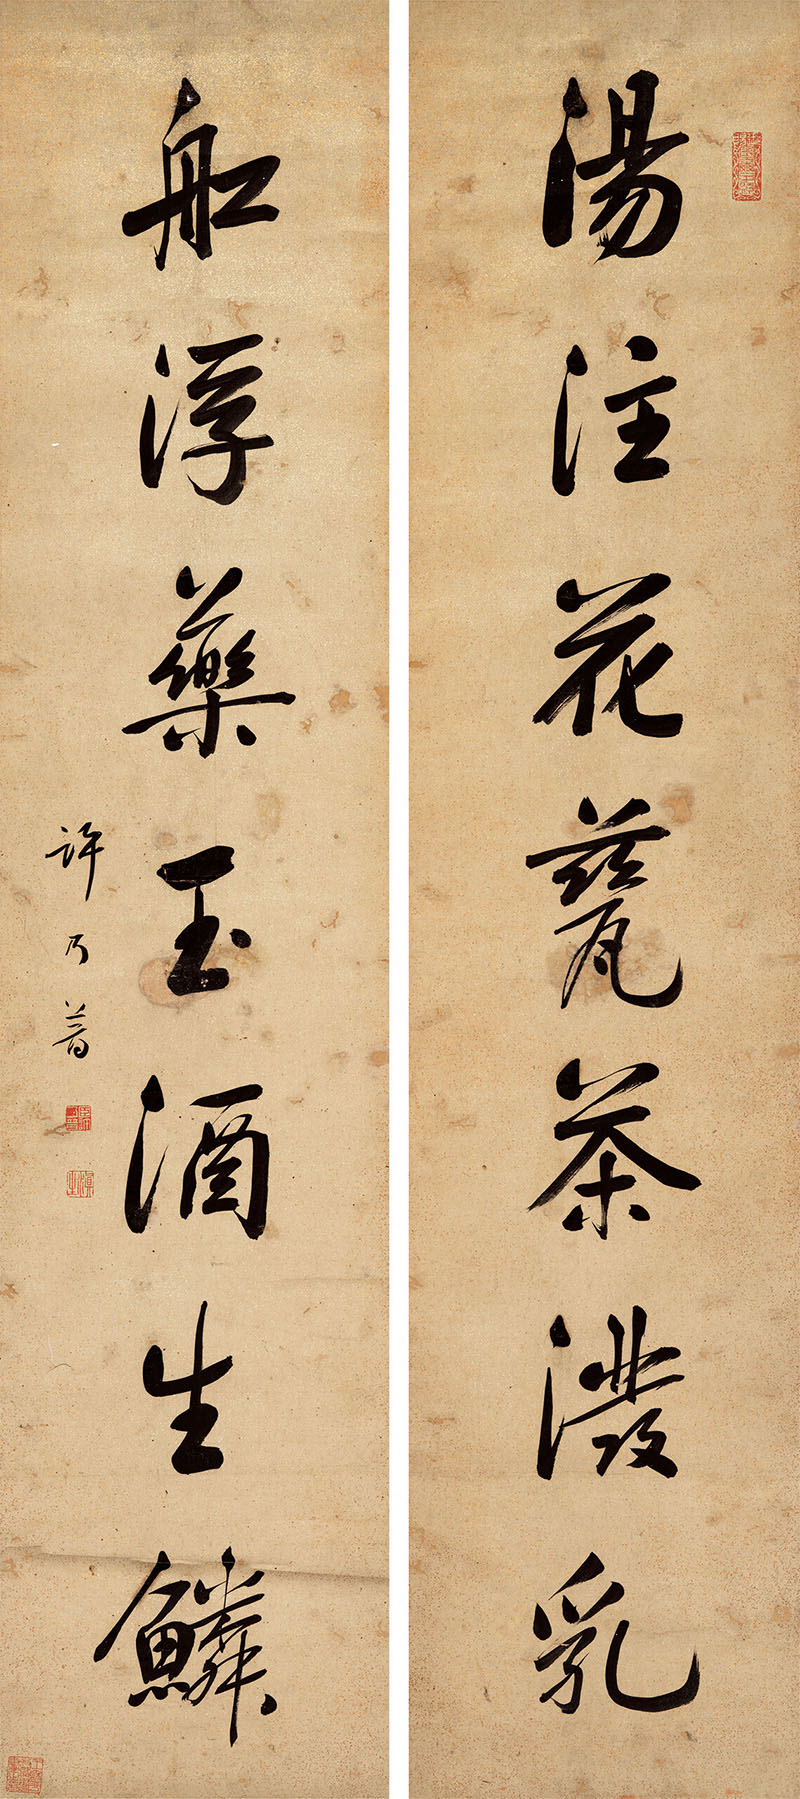 湯注花甆茶潑乳
舩浮藥玉酒生鱗
許乃普